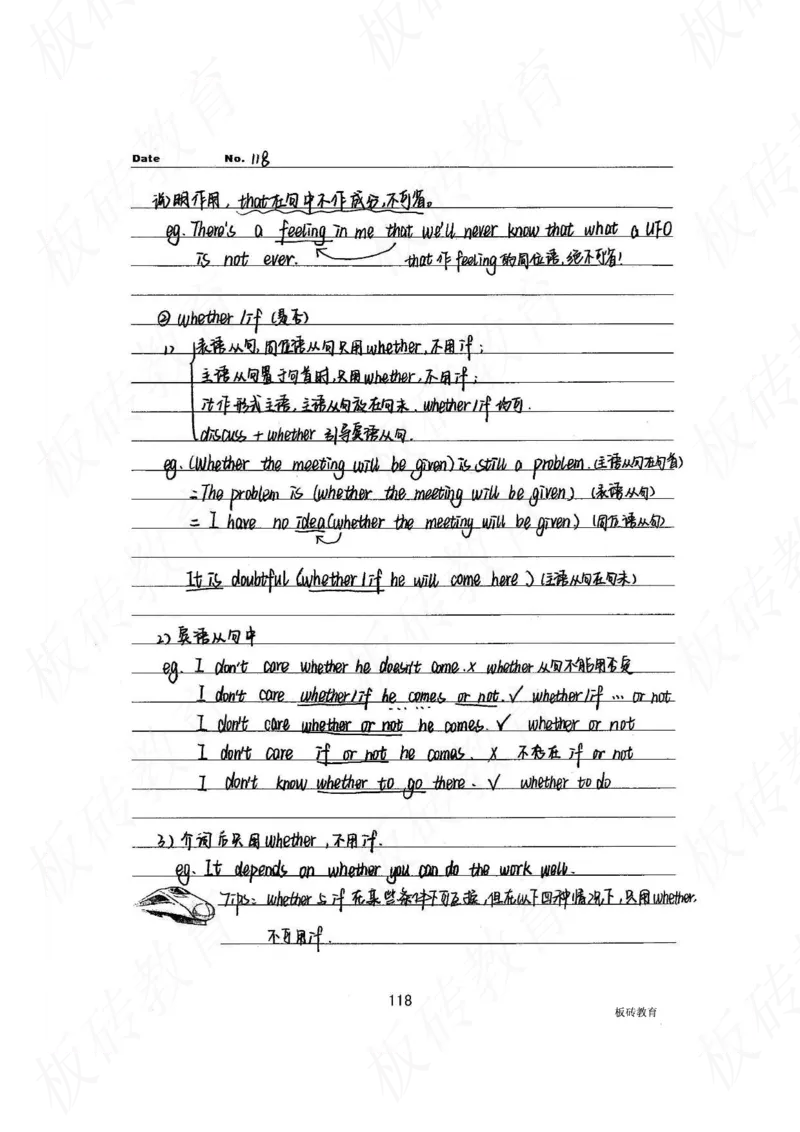 Date No. 118
说明作用，that在句中不作成分，不可省。
eg. There's a feeling in me that we'll never know that what a UFO
is not ever. that作feeling的同位语，绝不可省！
② whether/if (是否)
1) 表语从句，同位语从句只用whether，不用if；
主语从句置于句首时，只用whether，不用if；
it作形式主语，主语从句放在句末，whether/if均可.
discuss + whether 引导宾语从句.
eg. (Whether the meeting will be given) is still a problem. (主语从句在句首)
= The problem is (whether the meeting will be given) (表语从句)
= I have no idea (whether the meeting will be given) (同位语从句)
It is doubtful (whether/if he will come here) (主语从句在句末)
2) 宾语从句中
eg. I don't care whether he doesn't come. × whether从句不能用否定
I don't care whether/if he comes or not. √ whether/if … or not
I don't care whether or not he comes. √ whether or not
I don't care if or not he comes. × 不存在 if or not
I don't know whether to go there. √ whether to do
3) 介词后只用whether，不用if.
eg. It depends on whether you can do the work well.
Tips: whether与if在某些条件下可互换，但在以下四种情况下，只用whether,
不可用if.
118
板砖教育